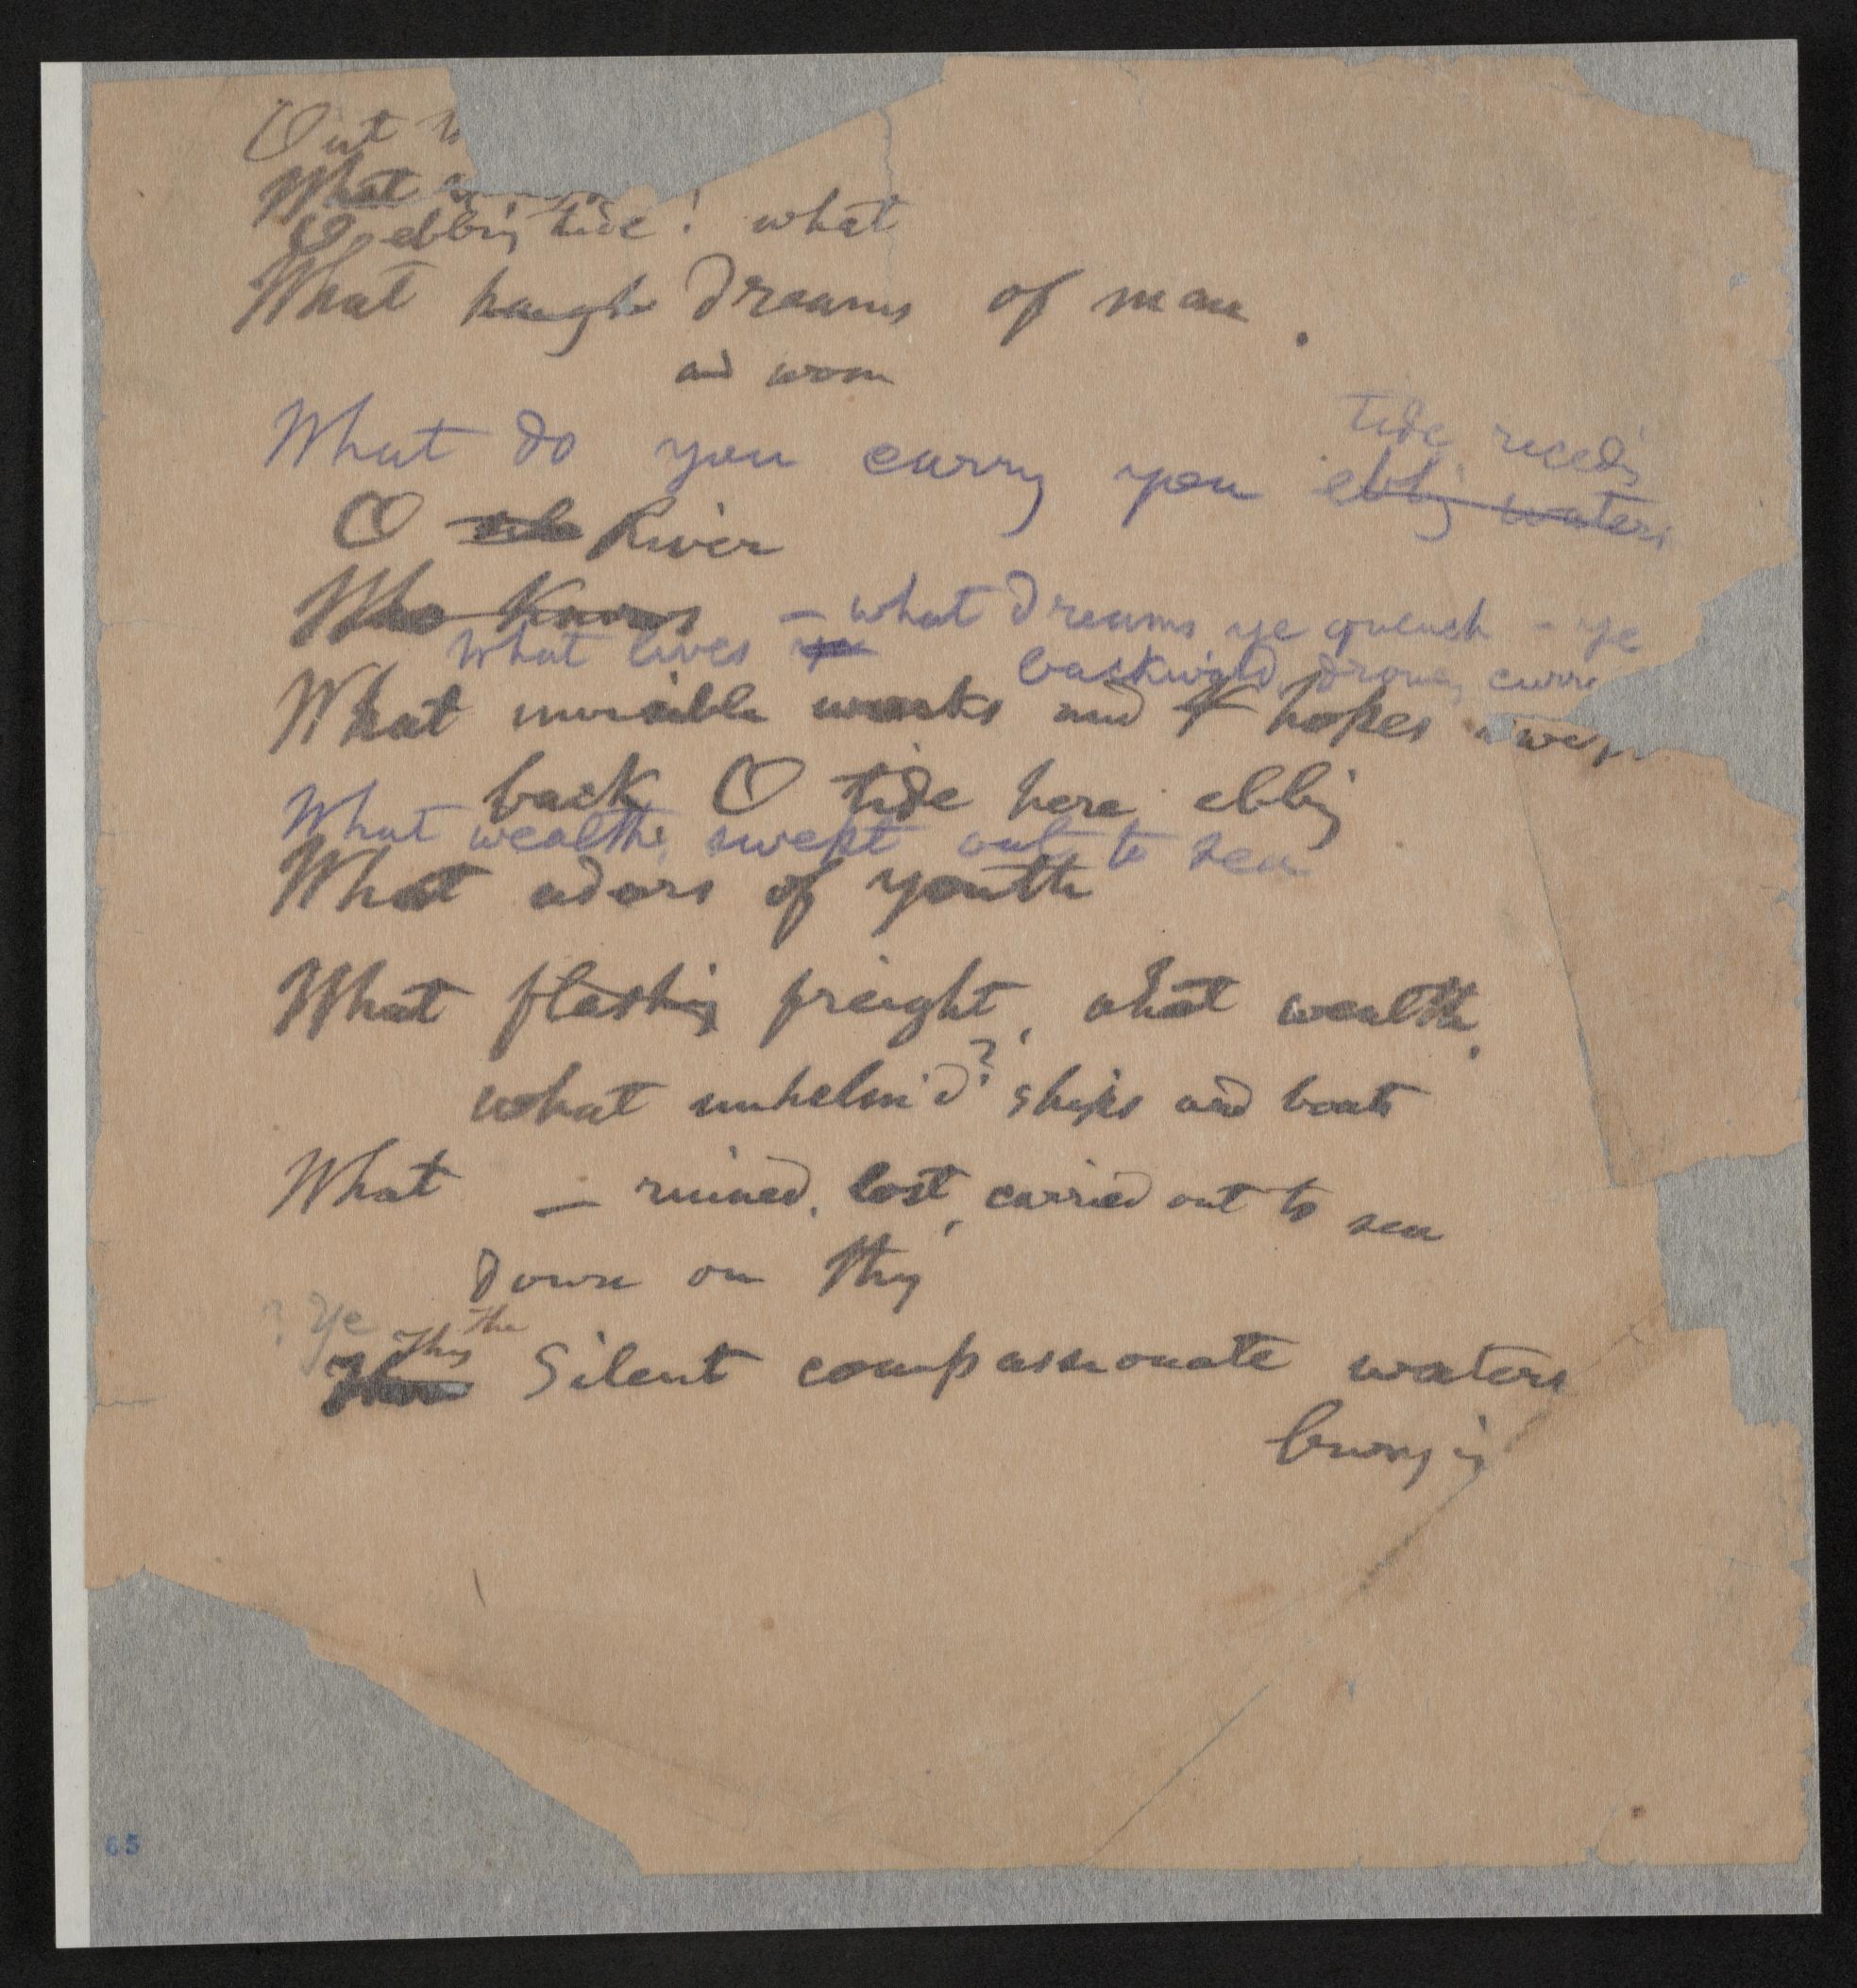 Out
What
O ebbing tide! what
What haugh dreams of man.
and wom
What do you carry you ebbing waters
tide, reced'g
O River
Who Knows – what dreams ye quench – ye
What lives ye backward, drown, curre
What invisible wrecks and of hopes swep
back O tide here ebbing
What wealth, swept out to sea
What odors of youth
What flashing freight, what wealth,
what unhelm'd? ships and boats
What — ruined, lost, carried out to sea
down on thy
? Ye Thy the
Silent compassionate waters
burying
65